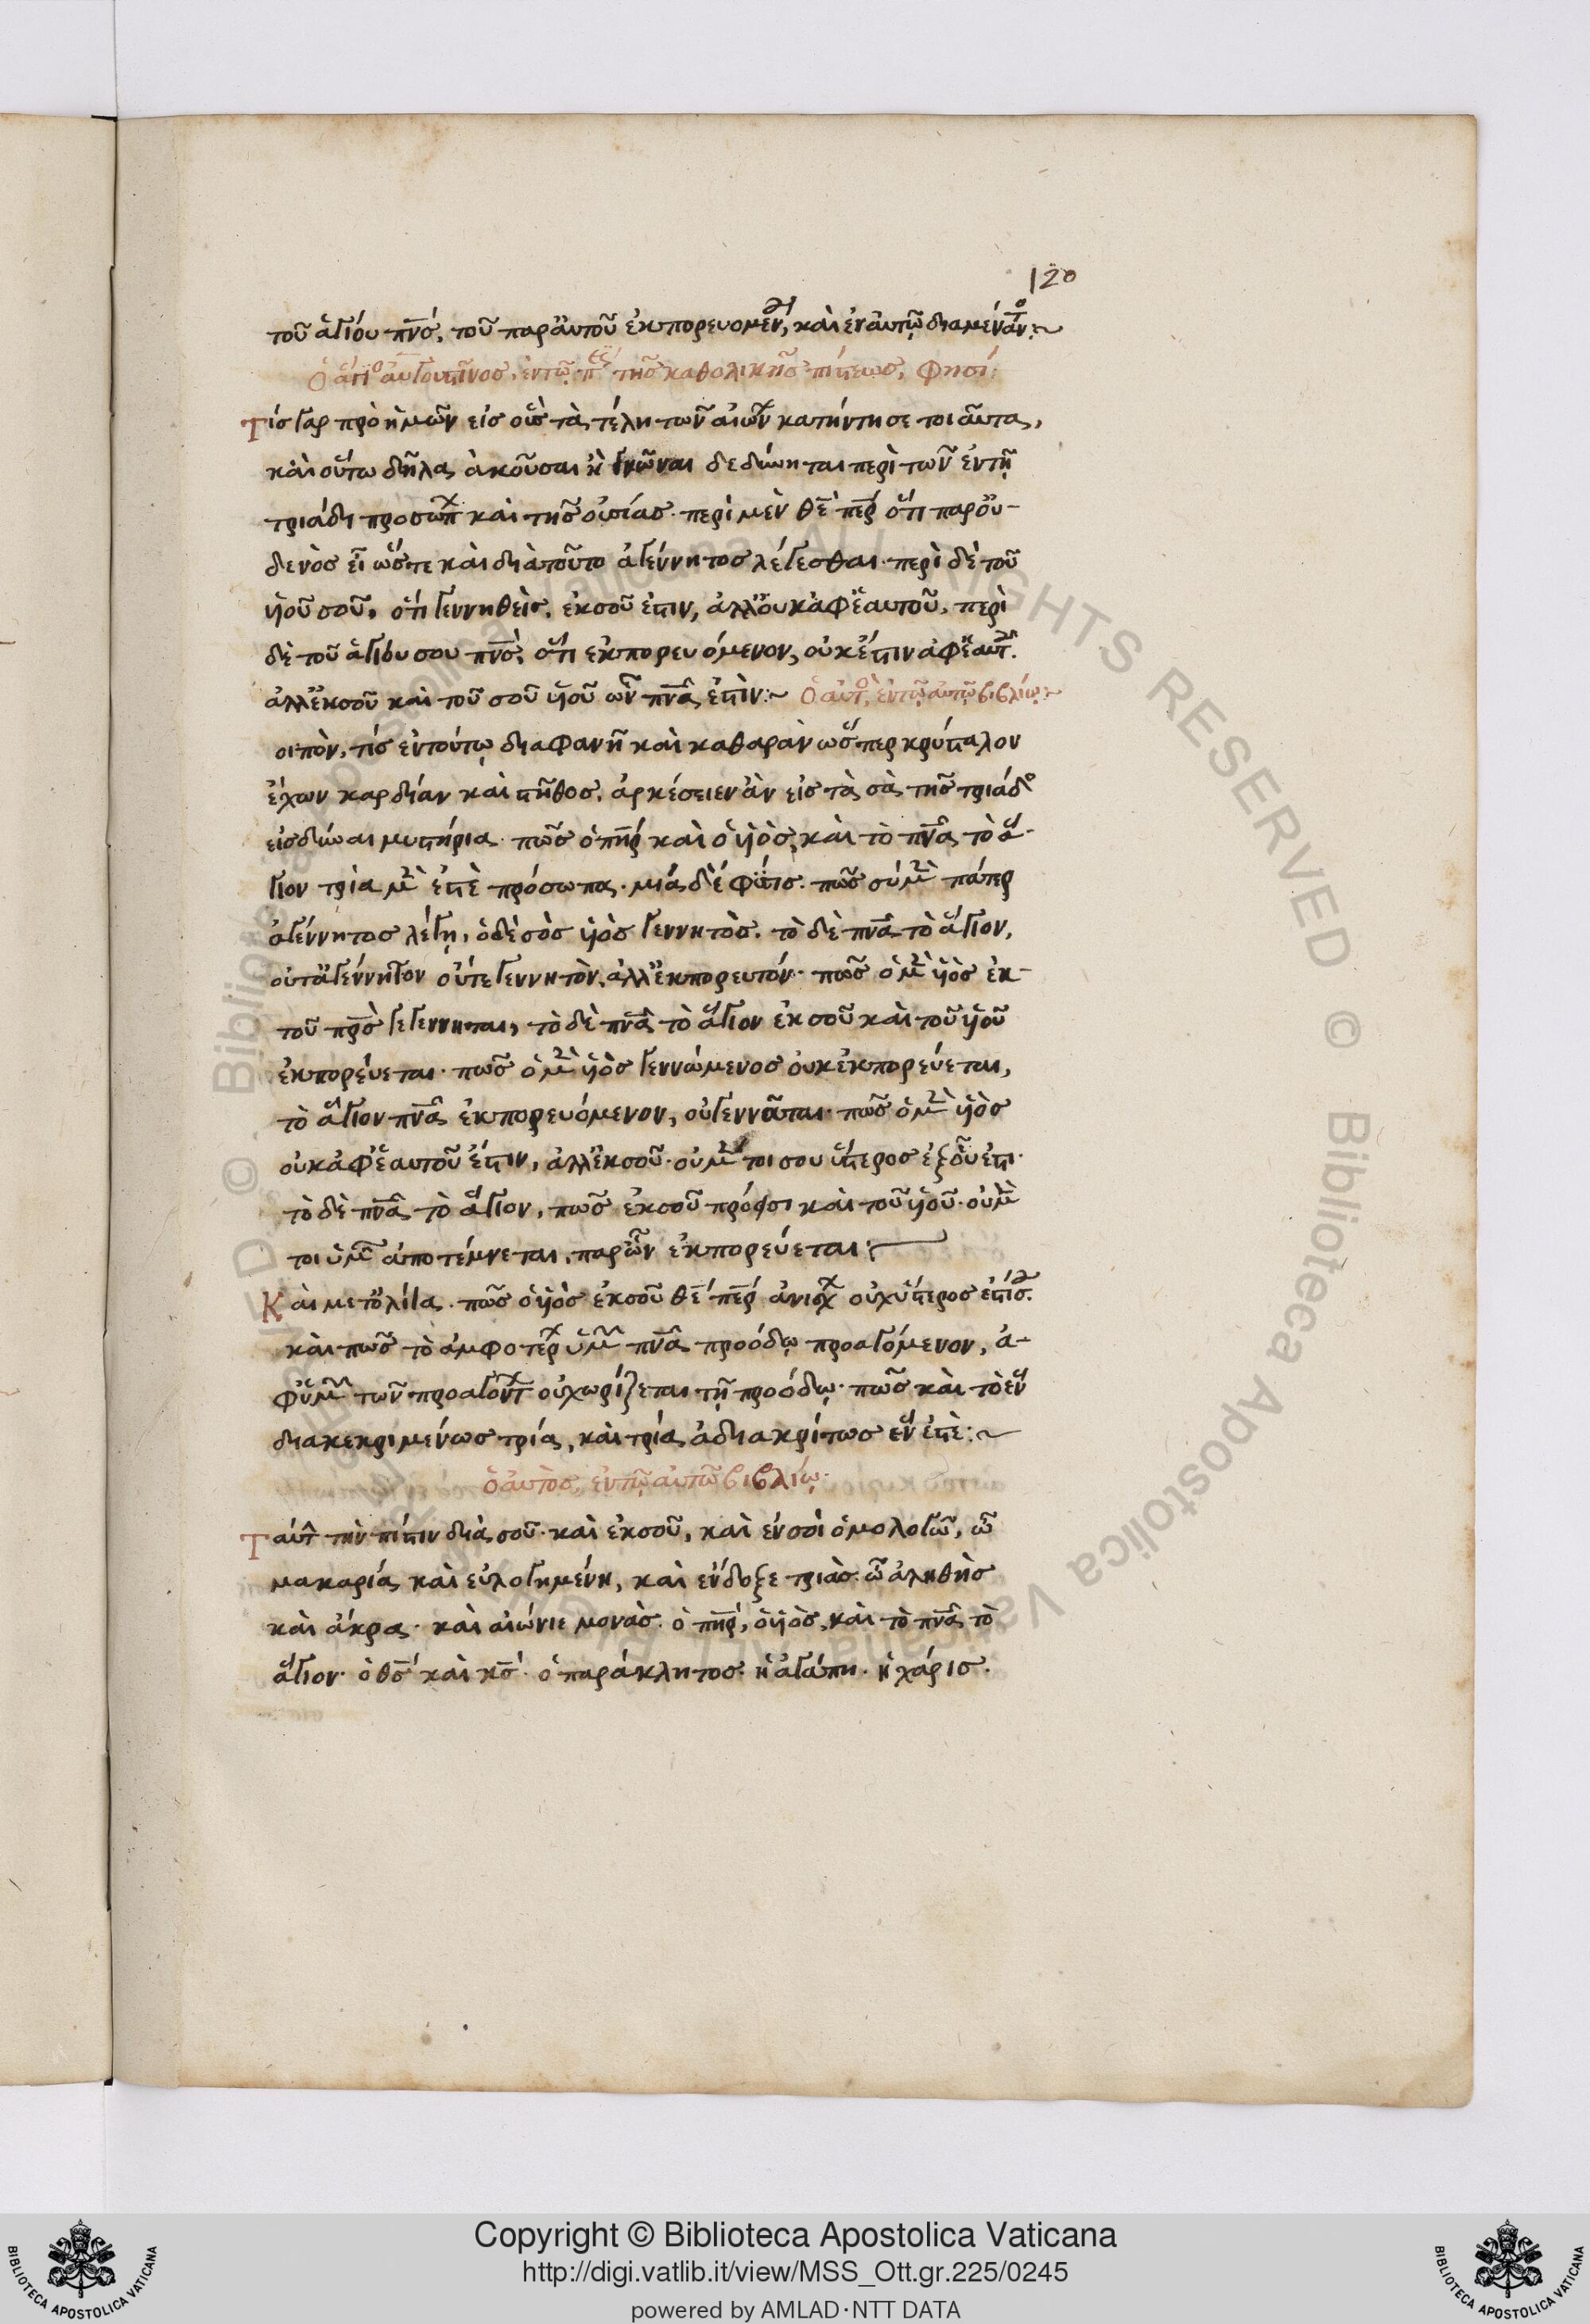 120
τοῦ ἁγίου πνς, τοῦ παρ' αὐτοῦ ἐκπορευομέν, καὶ ἐν αὐτῷ διαμέναν:~
Ὁ ἅγιο αὐγουστῖνος, ἐν τῷ π τῆς καθολικῆς πίστεως, φησί:
Τίς γαρ πρὸ ἡμῶν εἰς οὓς τὰ τέλη τῶν αἰών κατήντησε τοιαῦτα,
καὶ οὕτω δῆλα ἀκοῦσαι κ γνῶναι δεδύνηται περὶ τῶν ἐν τῇ
τριάδι προσώπ καὶ τῆς οὐσίας· περὶ μὲν θε περ ὅτι παρ' οὐ-
δενὸς εἶ ὥστε καὶ διὰ τοῦτο ἀγέννητος λέγεσθαι· περὶ δὲ τοῦ
υἱοῦ σοῦ, ὅτι γεννηθεὶς, ἐκ σοῦ ἐστιν, ἀλλ' οὐκ ἀφ' ἑαυτοῦ, περὶ
δὲ τοῦ ἁγίου σου πνς, ὅτι ἐκπορευόμενον, οὐκ ἔστιν ἀφ' ἑαυτ.
ἀλλ' ἐκ σοῦ καὶ τοῦ σοῦ υἱοῦ ὢν πνα ἐστὶν:~ Ὁ αὐτο, ἐν τῷ αὐτῷ βιβλίῳ:~
οιπὸν, τίς ἐν τούτῳ διαφανῆ καὶ καθαρὰν ὥσπερ κρύσταλον
ἔχων καρδίαν καὶ στῆθος, ἀρκέσειεν ἂν εἰς τὰ σὰ τῆς τριάδο
εἰσδύναι μυστήρια· πῶς ὁ πηρ καὶ ὁ υἱὸς, καὶ τὸ πνα τὸ ἅ-
γιον τρία μ ἐστὲ πρόσωπα· μιά δὲ φύσις· πῶς σύ μ πάτερ
ἀγέννητος λέγῃ, ὁ δὲ σὸς υἱὸς γεννητὸς· τὸ δὲ πνα τὸ ἅγιον,
οὐτ' ἀγέννητον οὔτε γεννητὸν, ἀλλ' ἐκπορευτόν· πῶς ὁ μ υἱὸς ἐκ-
τοῦ πρς γεγέννηται, τὸ δὲ πνα τὸ ἅγιον ἐκ σοῦ καὶ τοῦ υἱοῦ
ἐκπορεύεται· πῶς ὁ μ υἱὸς γεννώμενος οὐκ ἐκπορεύεται,
τὸ ἅγιον πνα ἐκπορευόμενον, οὐ γεννᾶται· πῶς ὁ μ υἱὸς
οὐκ ἀφ' ἑαυτοῦ ἔστιν, ἀλλ' ἐκ σοῦ· οὐ μ τοι σου ὕστερος ἐξ οὗ ἐστι·
τὸ δὲ πνα τὸ ἅγιον, πῶς ἐκ σοῦ πρόεισι καὶ τοῦ υἱοῦ· οὐ μ
τοι ὑμ ἀποτέμνεται, παρ' ὧν ἐκπορεύεται:
Καὶ μετ' ὀλίγα· πῶς ὁ υἱὸς ἐκ σοῦ θε περ ἀνισχ οὐχ ὕστερος ἐστί σ.
καὶ πῶς τὸ ἀμφοτέρ ὑμ πνα προόδῳ προαγόμενον, ἀ-
φ' ὑμ τῶν προαγόντ οὐ χωρίζεται τῇ προόδῳ· πῶς καὶ τὸ ἓν
διακεκριμένως τρία, καὶ τρία ἀδιακρίτως ἓν ἐστὲ:~
ὁ αὐτὸς, ἐν τῷ αὐτῷ βιβλίῳ·
Ταύτ τὴν πίστιν διὰ σοῦ· καὶ ἐκ σοῦ, καὶ ἐν σοὶ ὁμολογῶ, ὦ
μακαρία καὶ εὐλογημένη, καὶ ἔνδοξε τριὰς· ὦ ἀληθὴς
καὶ ἄκρα· καὶ αἰώνιε μονὰς· ὁ πηρ, ὁ υἱὸς, καὶ τὸ πνα τὸ
ἅγιον· ὁ θς καὶ κς· ὁ παράκλητος· ἡ ἀγάπη· ἡ χάρις·
© Biblioteca Apostolica Vaticana ALL RIGHTS RESERVED
Copyright © Biblioteca Apostolica Vaticana
http://digi.vatlib.it/view/MSS_Ott.gr.225/0245
powered by AMLAD·NTT DATA
BIBLIOTECA APOSTOLICA VATICANA
BIBLIOTECA APOSTOLICA VATICANA